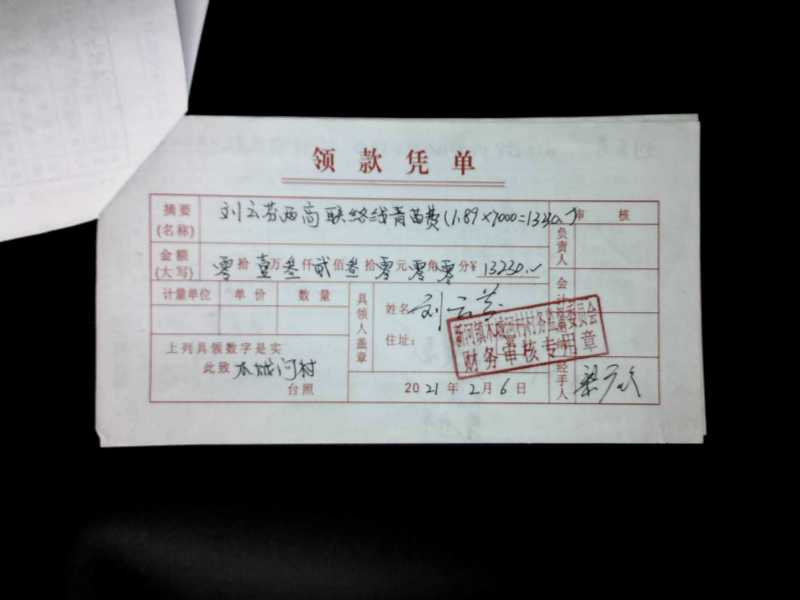 领款凭单
摘要 刘云芬西高联络线青苗费(1.89×7000=13230.) 审核
(名称)
金额 零拾壹万叁仟贰佰叁拾零元零角零分¥13230.
(大写)
负责人
计量单位 单价 数量
具领人盖章
姓名: 刘云芬
住址:
会计
新河镇木城河村村务监督委员会
财务审核专用章
上列具领数字是实
此致 木城河村
台照
2021年2月6日
经手人